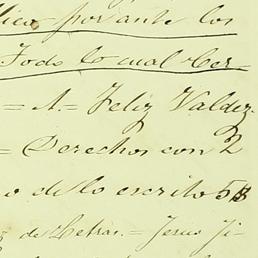 lico, por ante los
Todo lo cual Cer-
= A = Feliz Valdez.
= Derechos con 2
o de lo escrito 5
de Letras. = Jesus Ji-